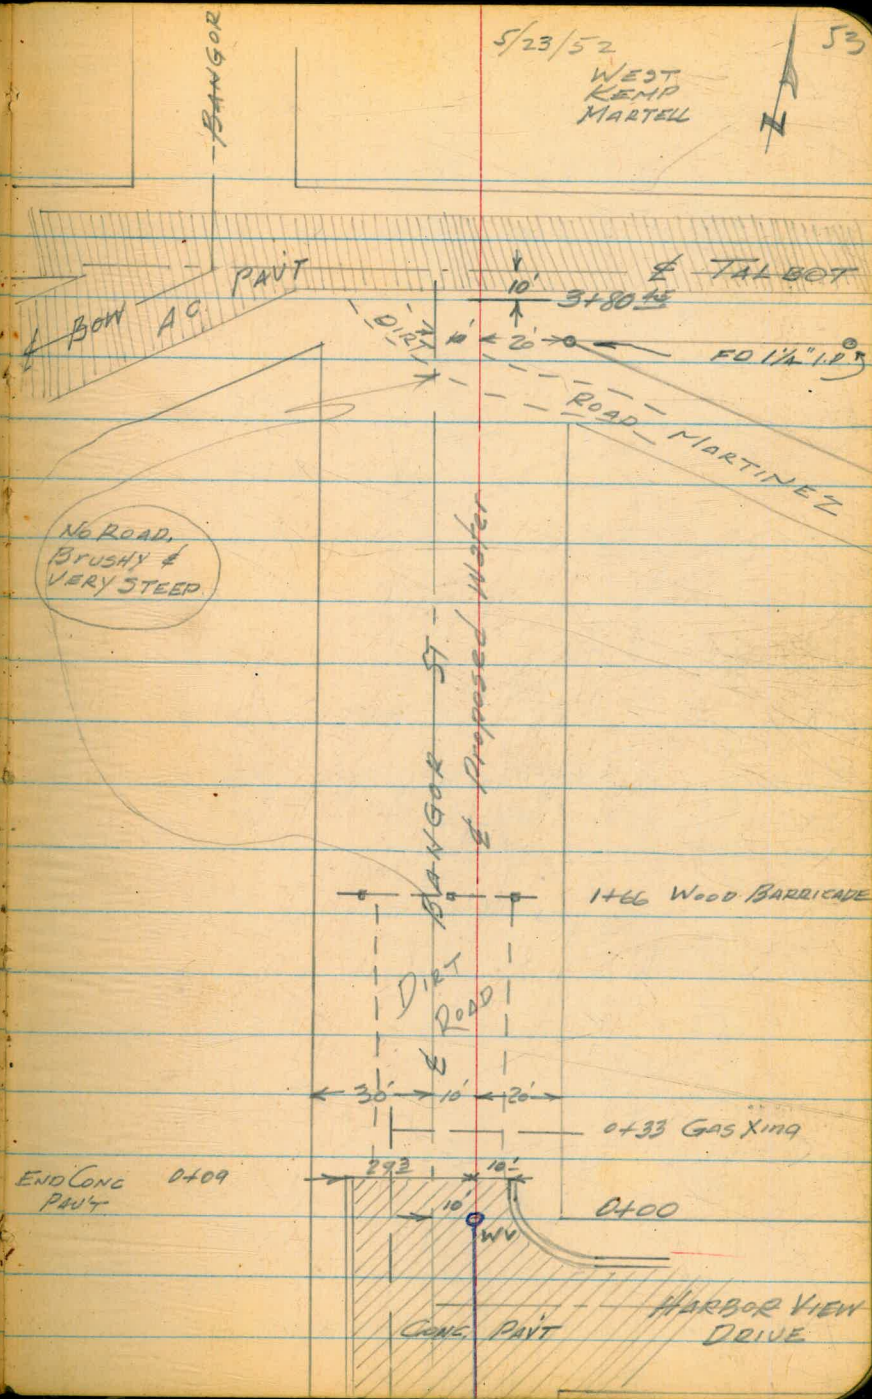 5/23/52
53
WEST
KEMP
MARTELL
BANGOR
N
PAVT
A C
℄ BOW
℄ TALBOT
10'
DIRT
10' 20'
FD 1¼" I.P.
ROAD
MARTINEZ
NO ROAD,
BRUSHY &
VERY STEEP
℄ BANGOR ST
℄ Proposed Water
1+66 WOOD BARRICADE
DIRT
ROAD
30' 10' 20'
0+33 GAS Xing
END CONC 0+09
PAV'T
10'
10'
0+00
WV
CONC. PAV'T
HARBOR VIEW
DRIVE